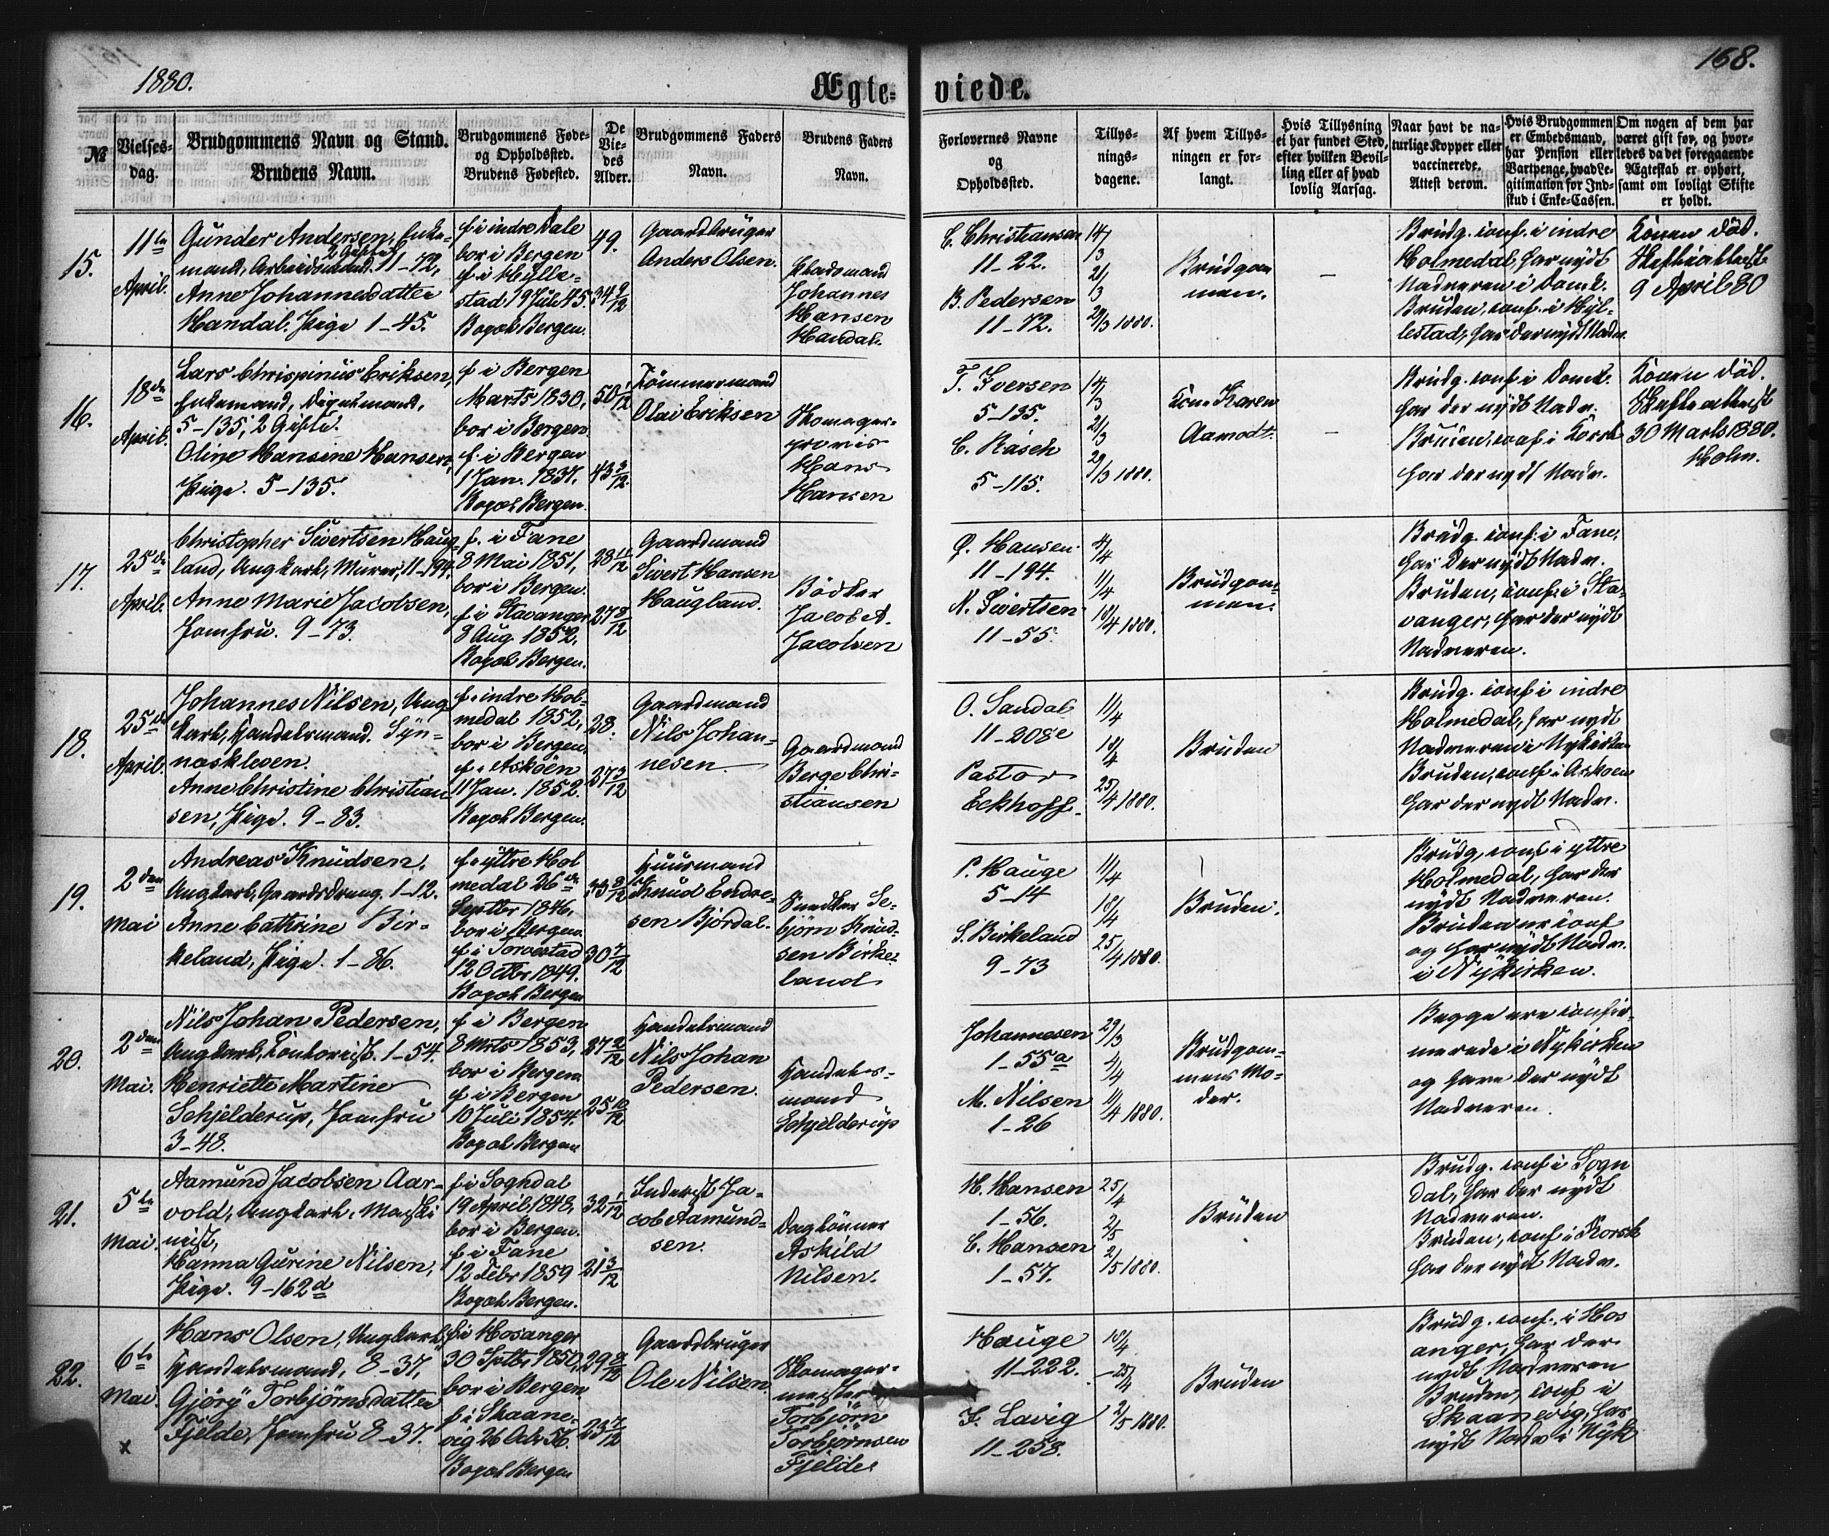 1880.
Ægte-
viede.
168.
№
Vielses-
dag.
Brudgommens Navn og Stand.
Brudens Navn.
Brudgommens Føde-
og Opholdssted.
Brudens Fødested.
De
Vie-
des
Alder.
Brudgommens Faders
Navn.
Brudens Faders
Navn.
Forlovernes Navne
og
Opholdssted.
Tillys-
nings-
dagene.
Af hvem Tillys-
ningen er for-
langt.
Hvis Tillysning
ei har fundet Sted,
efter hvilken Bevil-
ling eller af hvad
lovlig Aarsag.
Naar havt de na-
turlige Kopper eller
vaccinerede.
Attest derom.
Hvis Brudgommen
er Embedsmand,
har Pension eller
Vartpenge, hvad Le-
gitimation for Ind-
skud i Enke-Cassen.
Om nogen af dem har
været gift før, og hvor-
ledes da det foregaaende
Ægteskab er ophørt,
samt om lovligt Skifte
er holdt.
15.
11te
April.
Gunder Andersen, Enke-
mand, Arbeidsmand. 11-72,
2 Gifte
Anne Johannesdatter
Handal. Pige 1-45.
f. i indre Dale
bor i Bergen
f. i Hylle-
stad 19 Juli 45.
Bopæl Bergen.
49.
34 9/12
Gaardbruger
Anders Olsen.
Pladsmand
Johannes
Hansen
Handal.
C. Christiansen
11-22.
B. Pedersen
11-72.
14/3
21/3
29/3 1880.
Brudgom
men.
–
Brudg. conf. i indre
Holmedal, har nydt
Nadveren i Domk.
Bruden, conf. i Hyl-
lestad, har der nydt Nadv.
Konen død.
Skifteattest
9 April 80
16.
18de
April.
Lars Chrispinus Eriksen,
Enkemand, Vognmand,
5-135, 2 Gifte.
Oline Hansine Hansen,
Pige. 5-135.
f. i Bergen
Marts 1830,
bor i Bergen.
f. i Bergen
1 Jan. 1837.
Bopæl Bergen.
50 1/12
43 3/12
Tømmermand
Olai Eriksen
Skomager-
Hans
Hansen
T. Iversen
5-135.
C. Rasch
5-115.
14/3
21/3
29/3 1880.
Kone Karen
Aamodt.
–
Brudg. conf. i Domk.
har der nydt Nadv.
Bruden, conf. i Korsk
har der nydt Nadv.
Konen død.
Skifteattest
30 Marts 1880.
Holm.
17.
25de
April.
Christopher Sivertsen Haug-
land, Ungkarl, Murer, 11-194.
Anne Marie Jacobsen,
Jomfru. 9-73.
f. i Fane
8 Mai 1851,
bor i Bergen.
f. i Stavanger
8 Aug 1852,
Bopæl Bergen.
28 11/12
27 8/12
Gaardmand
Sivert Hansen
Haugland.
Bødker
Jacob A.
Jacobsen
O. Hansen
11-194.
N. Sivertsen
11-55.
4/4
11/4
18/4 1880.
Brudgom-
men.
Brudg. conf. i Fane,
har der nydt Nadv.
Bruden, conf. i Sta-
vanger, har der nydt
Nadveren.
18.
25de
April.
Johannes Nilsen, Ung-
karl, Handelsmand. Syn-
neskleven.
Anne Christine Christian
sen, Pige. 9-83.
f. indre Hol-
medal 1852,
bor i Bergen
f. i Askøen
11 Jan. 1852.
Bopæl Bergen.
28.
27 3/12
Gaardmand
Nils Johan-
nesen
Gaardmand
Berge Chri-
stiansen
O. Sandal
11-208e
Pastor
Eckhoff.
11/4
18/4
25/4 1880.
Bruden
Brudg. conf. i indre
Holmedal, har nydt
Nadveren i Nykirken
Bruden, conf. i Askøen
har der nydt Nadv.
19.
2den
Mai
Andreas Knudsen,
Ungkarl, Gaardsdreng. 1-12.
Anne Cathrine Bir-
keland, Pige. 1-86.
f. i yttre Hol
medal 26de
Septbr 1846,
bor i Bergen
f. i Torvestad
12 Octbr 1849.
Bopæl Bergen
33 8/12
30 7/12
Huusmand
Knud Endre-
sen Bjordal.
Snedker Se-
bjørn Knud-
sen Birke-
land
P. Hauge
5-14
S. Birkeland
9-73
11/4
18/4
25/4 1880.
Bruden.
Brudg. conf. i yttre
Holmedal, har der
nydt Nadveren.
Bruden er conf
og har nydt Nadv.
i Nykirken.
20.
2den
Mai.
Nils Johan Pedersen,
Ungkarl, Contorist. 1-54.
Henriette Martine
Schjelderup, Jomfru
3-48.
f. i Bergen
8 Mrts 1853,
bor i Bergen
f. i Bergen
10 Juli 1854.
Bopæl Bergen
27 2/12
25 10/12
Handelsmand
Nils Johan
Pedersen.
Handels-
mand
Schjelderup
Johannesen
1-55a
M. Nilsen
1-26
29/3
4/4
11/4 1880.
Brudgom-
mens Mo-
der.
Begge ere confir-
merede i Nykirken
og have der nydt
Nadveren.
21.
5te
Mai.
Aamund Jacobsen Aar-
vold, Ungkarl, Maski
nist,
Hanna Gurine Nilsen,
Pige. 9-162d
f. i Soghdal
19 April 1848,
bor i Bergen.
f. i Fane
12 Febr 1859
Bopæl Bergen.
32 1/12
21 3/12
Inderist Ja-
cob Aamund-
sen.
Daglønner
Askild
Nilsen.
H. Hansen
1-56.
C. Hansen
1-57.
25/4
2/5
2/5 1880.
Bruden
Brudg. conf. i Sogn
dal, har der nydt
Nadveren.
Bruden, conf. i Korsk
har der nydt Nadv.
22.
6te
Mai.
x
Hans Olsen, Ungkarl,
Handelsmand, 8-37,
Gjøry Torbjørnsdatter
Fjelde, Jomfru 8-37.
f. i Hosanger
30 Sptbr 1850,
bor i Bergen
f. i Skaane-
vig 26 Octr 56.
Bopæl Bergen
29 8/12
23 7/12
Gaardbruger
Ole Nilsen.
Skomager-
mester
Torbjørn
Torbjørnsen
Fjelde
Hauge
11-222.
J. Lavig
11-258.
18/4
25/4
2/5 1880.
Bruden
Brudg. conf. i Hos
anger, har der
nydt Nadveren
Bruden, conf i
Skaanevig, har
nydt Nadv i Nyk